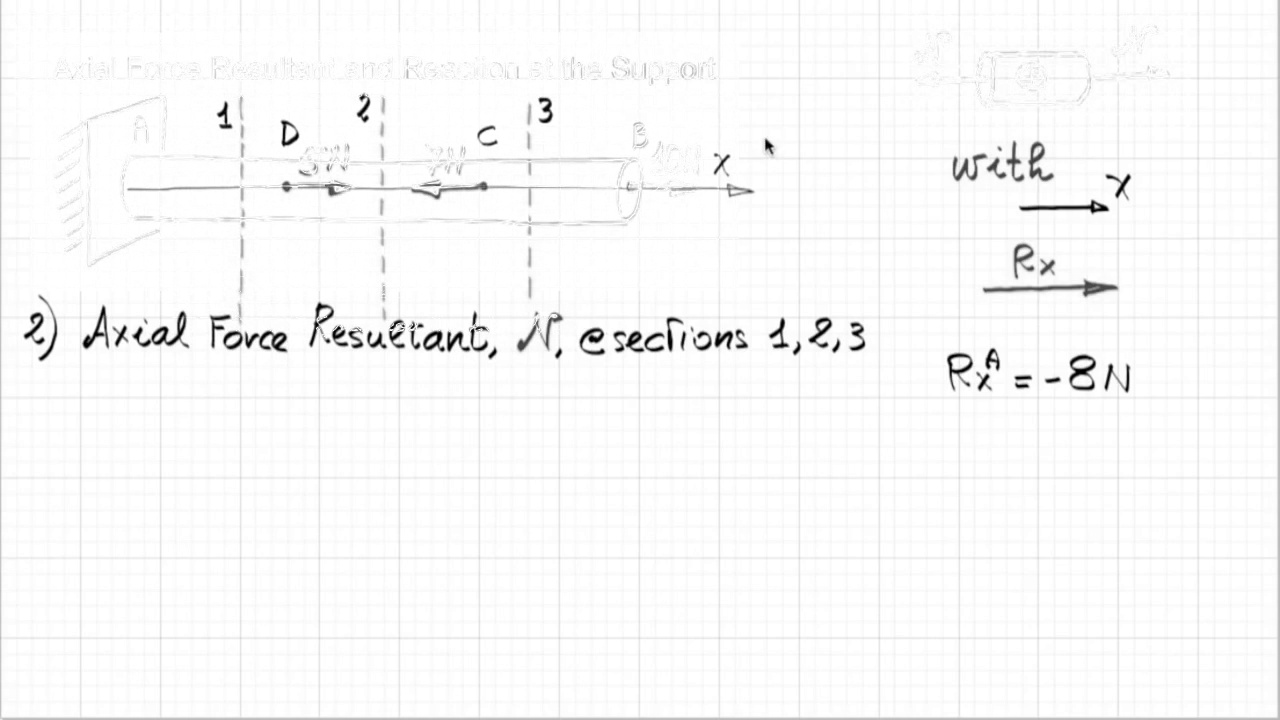 Axial Force Resultant and Reaction at the Support
1 2 3
A D C B
5N 7N 10N X
with
X
Rx
2) Axial Force Resultant, N, @ sections 1, 2, 3
RxA = -8N
N N